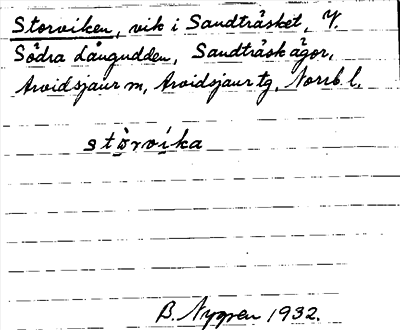 Storviken, vik i Sandträsket, V.
Södra Långudden, Sandträsk ägor,
Arvidsjaur m, Arvidsjaur tg, Norrb. l.
stòrvíka
B. Nygren 1932.